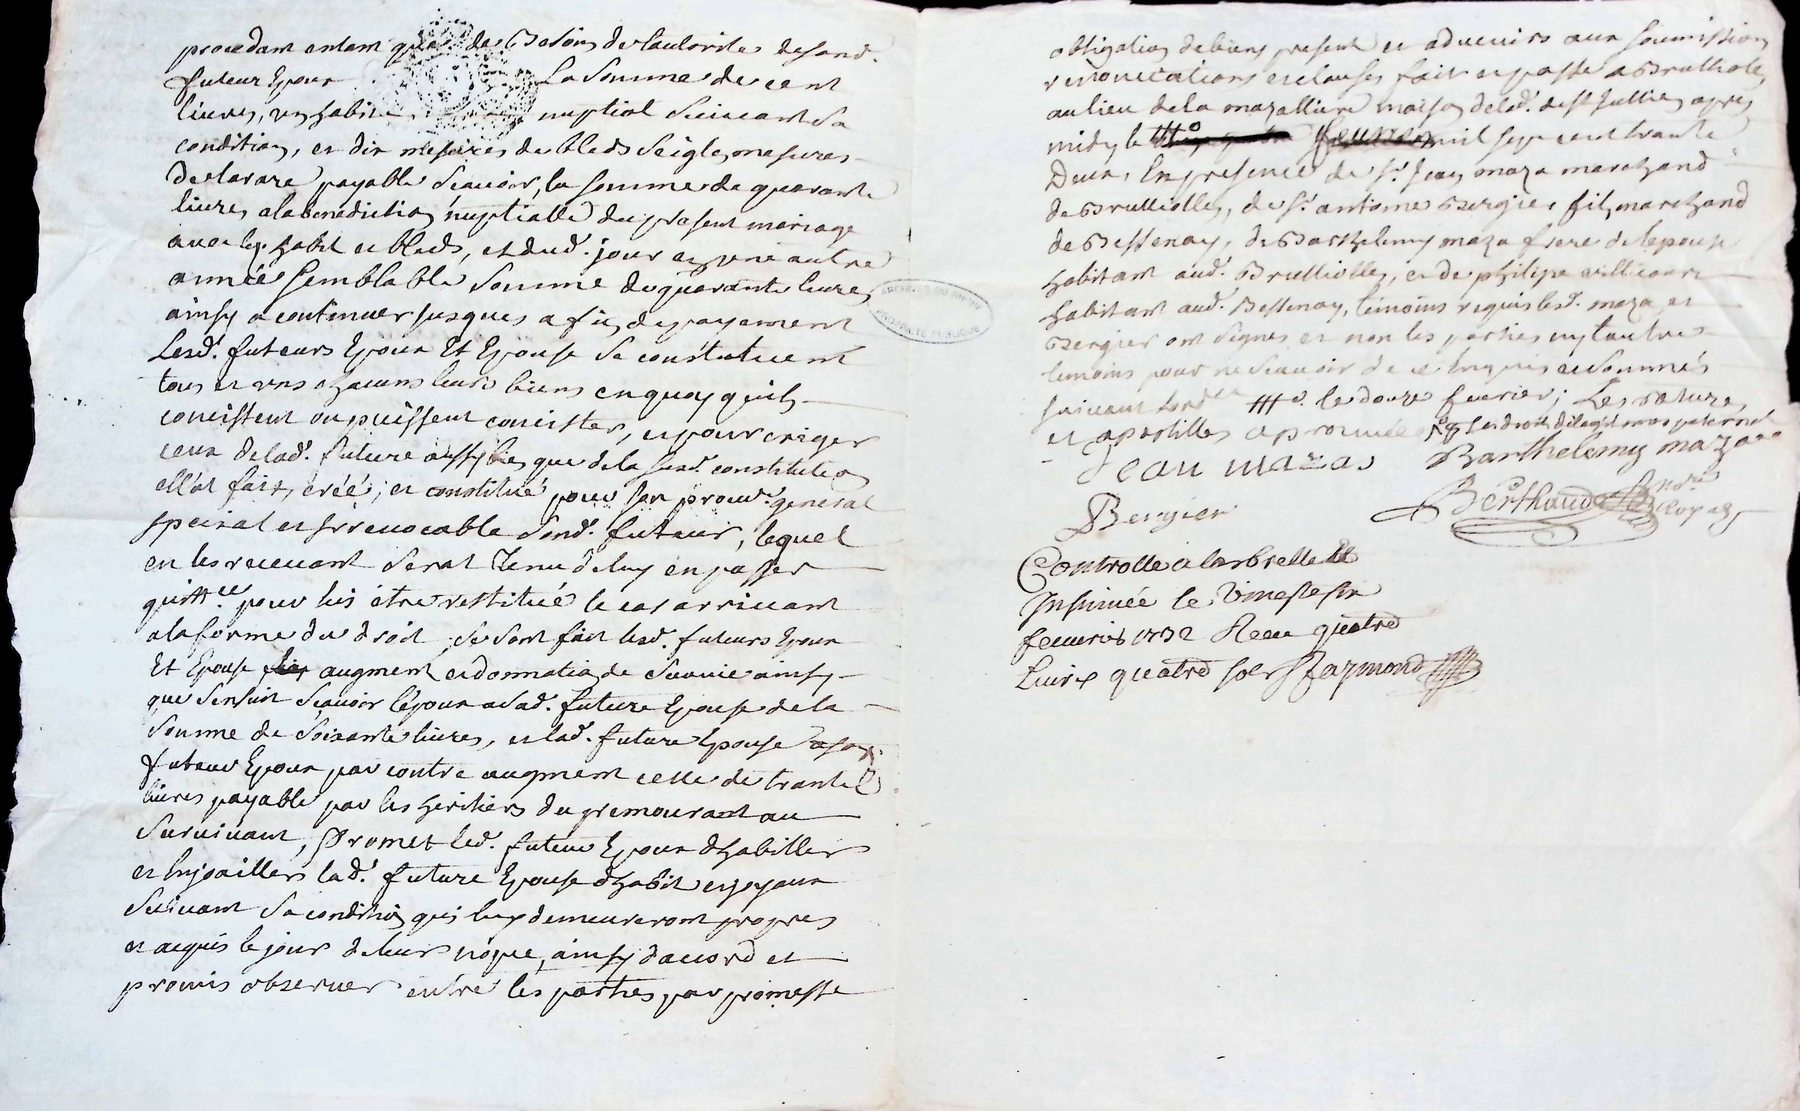 procedant entant que de besoins de l'autorite desond.
futeur Epoux La Somme de cent
livres, un habit nuptial Suivant Sa
condition, et dix mesures de bleds Seigle, mesures
de larare payable Scavoir, la somme de quarante
livres a la benediction nuptialle du present mariage
avec les habit et bleds, et dud. jour en une autre
année Semblable Somme de quarante livres
ainsy a continuer jusques a fin de payement
Lesd. futeurs Epoux Et Epouse Se constituent
tous et uns chacuns leurs biens en quoy quils
concistent ou puissent concister, et pour exiger
ceux de lad. future aussy bien que de la susd. constitution
ell'at fait, créé, et constitué pour son procur. general
special et irrevocable Sond. futeur, lequel
en les recevant Serat Tenu de luy en passer
quitt.ce pour luis être restitué le cas arrivant
a la forme du droit, Se Sont fait lesd. futeurs Epoux
Et Epouse augment et donnation de Survie ainsy
que Sensuit Scavoir l'epoux a Sad. future Epouse de la
Somme de Soixante livres, et lad. future Epouse a son
futeur Epoux par contre augment celle de trante
livres payable par les heritiers du premourant au
Survivant, Promet led. futeur Epoux dhabiller
et Enjoailler lad. future Epouse dhabit et joyaux
Suivant Sa condition qui luy demeureront propres
et acquis le jour de leur nopce, ainsy d'accord et
promis observer entre les parties par promesse
obligation de biens present et advenirs aux soumissions
renonciations et clauses fait et passé a Brulliole,
au lieu de la mazalliere maison de lad. de St Jullien apres
midy le fevrier mil sept cent trante
Deux, En presence de Sr. Jean maza marchand
de Brullioles, de Sr. antoine Bergier fils marchand
de Bessenay, de Barthelemy maza frere de lepouse
habitant aud. Brullioles, et de philipe villecour
habitant aud. Bessenay, témoins requis lesd. maza et
Bergier ont Signés et non les parties ny l'autre
temoins pour ne Scavoir de ce Enquis et Sommés
suivant Lord.ce le douze fevrier; Les rature
et apostilles aprouvée les droits de legitimes paternel
Jean mazas Barthelemy maza
Bergier Berthaud no.re Royal
Controlle a larbrelle Et
Insinuée le Vingt Six
fevrier 1732 Receu quatre
Livre quatre sols Raymond